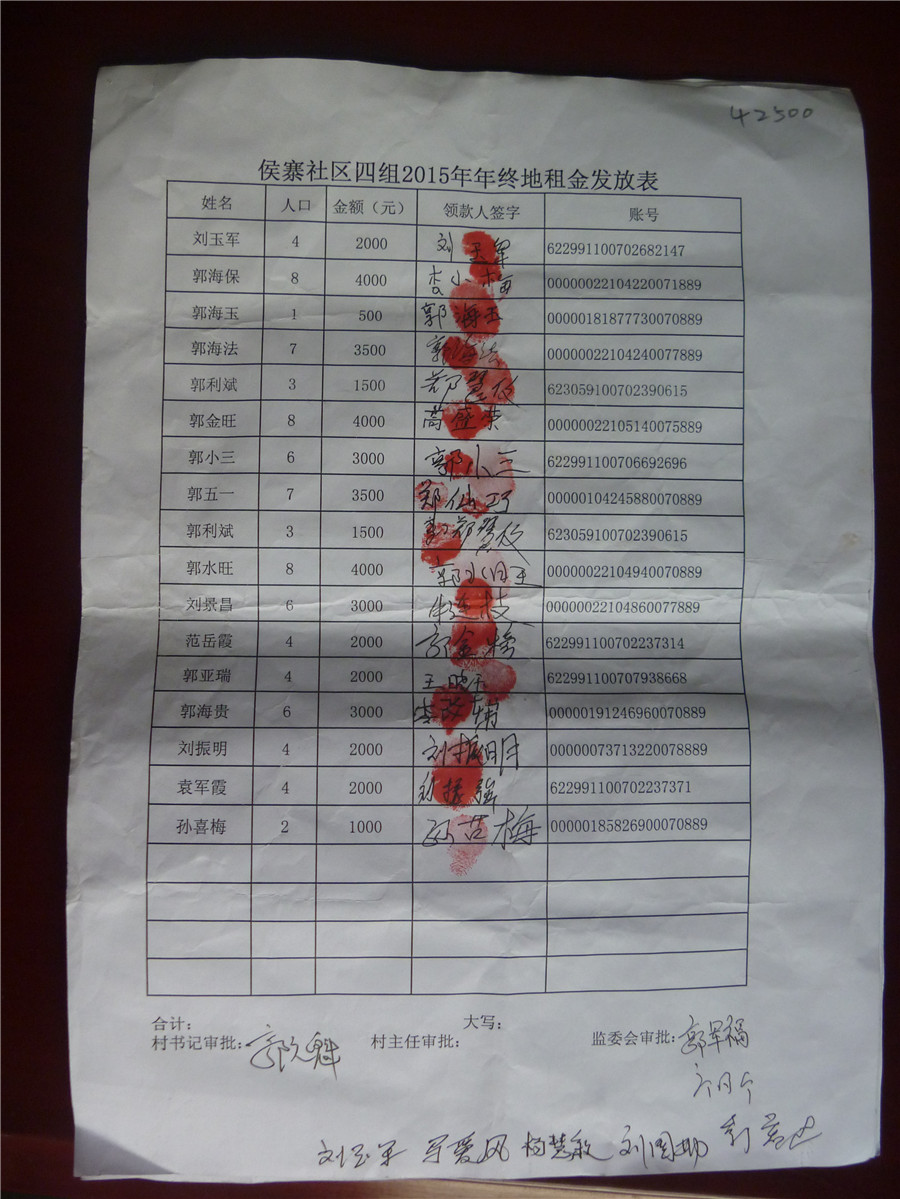 42500
侯寨社区四组2015年年终地租金发放表
姓名 人口 金额（元） 领款人签字 账号
刘玉军 4 2000 刘玉军 622991100702682147
郭海保 8 4000 李小梅 00000022104220071889
郭海玉 1 500 郭海玉 00000181877730070889
郭海法 7 3500 郭海法 00000022104240077889
郭利斌 3 1500 623059100702390615
郭金旺 8 4000 00000022105140075889
郭小三 6 3000 郭小三 622991100706692696
郭五一 7 3500 郑仙巧 00000104245880070889
郭利斌 3 1500 623059100702390615
郭水旺 8 4000 郭水旺 00000022104940070889
刘景昌 6 3000 00000022104860077889
范岳霞 4 2000 622991100702237314
郭亚瑞 4 2000 622991100707938668
郭海贵 6 3000 00000191246960070889
刘振明 4 2000 刘振明 00000073713220078889
袁军霞 4 2000 622991100702237371
孙喜梅 2 1000 00000185826900070889
合计： 大写：
村书记审批： 村主任审批： 监委会审批：郭军福
刘玉军